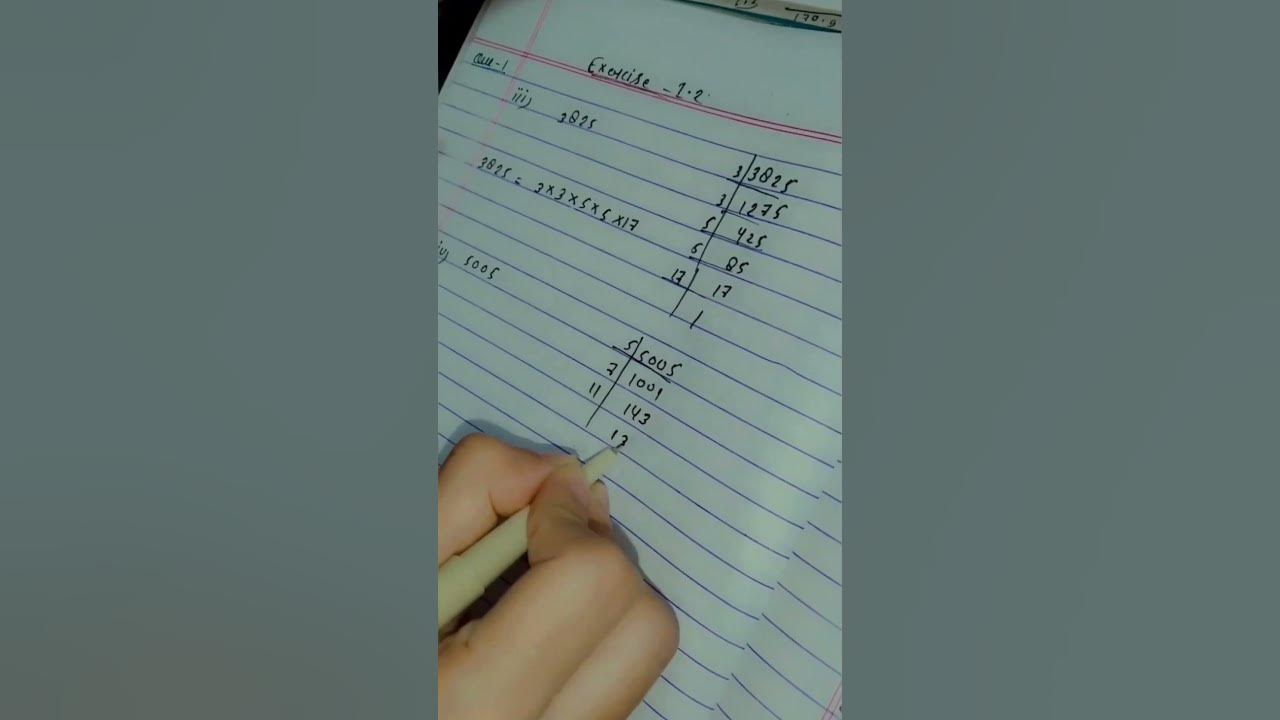 Exercise - 1.2
Que-1
iii) 3825
3 3825
3 1275
5 425
5 85
17 17
1
3825 = 3×3×5×5×17
iv) 5005
5 5005
7 1001
11 143
13